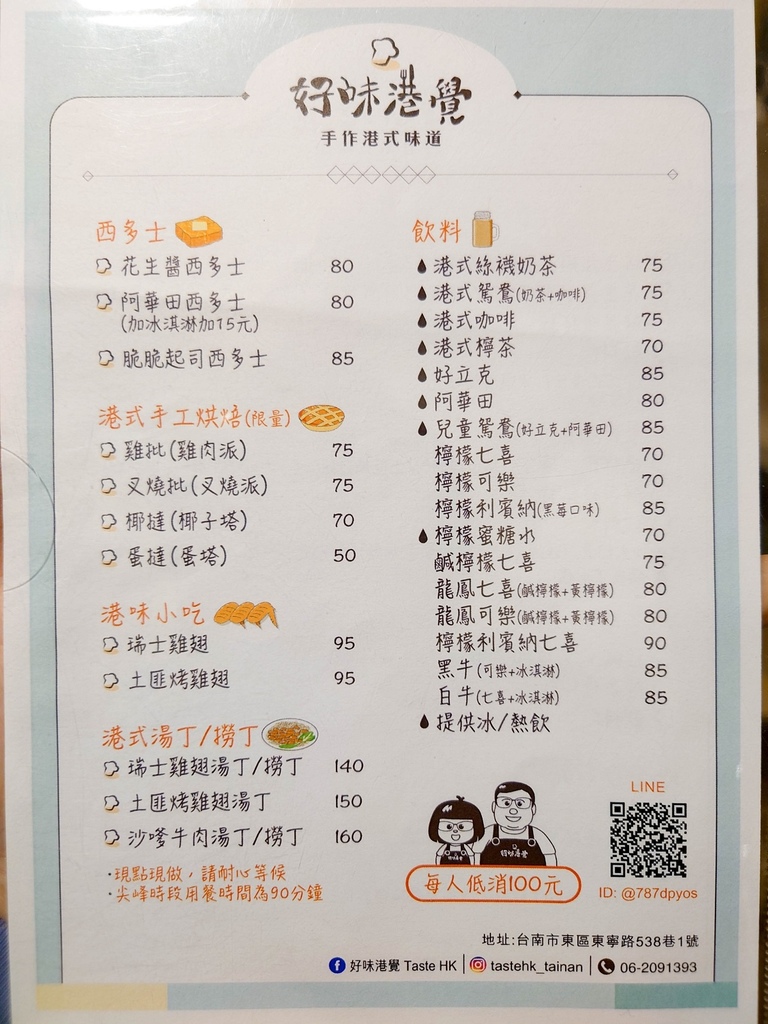 好味港覺
手作港式味道
西多士
花生醬西多士 80
阿華田西多士 80
(加冰淇淋加15元)
脆脆起司西多士 85
港式手工烘焙(限量)
雞批(雞肉派) 75
叉燒批(叉燒派) 75
椰撻(椰子塔) 70
蛋撻(蛋塔) 50
港味小吃
瑞士雞翅 95
土匪烤雞翅 95
港式湯丁/撈丁
瑞士雞翅湯丁/撈丁 140
土匪烤雞翅湯丁 150
沙嗲牛肉湯丁/撈丁 160
·現點現做,請耐心等候
·尖峰時段用餐時間為90分鐘
飲料
港式絲襪奶茶 75
港式鴛鴦(奶茶+咖啡) 75
港式咖啡 75
港式檸茶 70
好立克 85
阿華田 80
兒童鴛鴦(好立克+阿華田) 85
檸檬七喜 70
檸檬可樂 70
檸檬利賓納(黑莓口味) 85
檸檬蜜糖水 70
鹹檸檬七喜 75
龍鳳七喜(鹹檸檬+黃檸檬) 80
龍鳳可樂(鹹檸檬+黃檸檬) 80
檸檬利賓納七喜 90
黑牛(可樂+冰淇淋) 85
白牛(七喜+冰淇淋) 85
提供冰/熱飲
好味港覺
每人低消100元
LINE
ID: @787dpyos
地址:台南市東區東寧路538巷1號
好味港覺 Taste HK | tastehk_tainan | 06-2091393